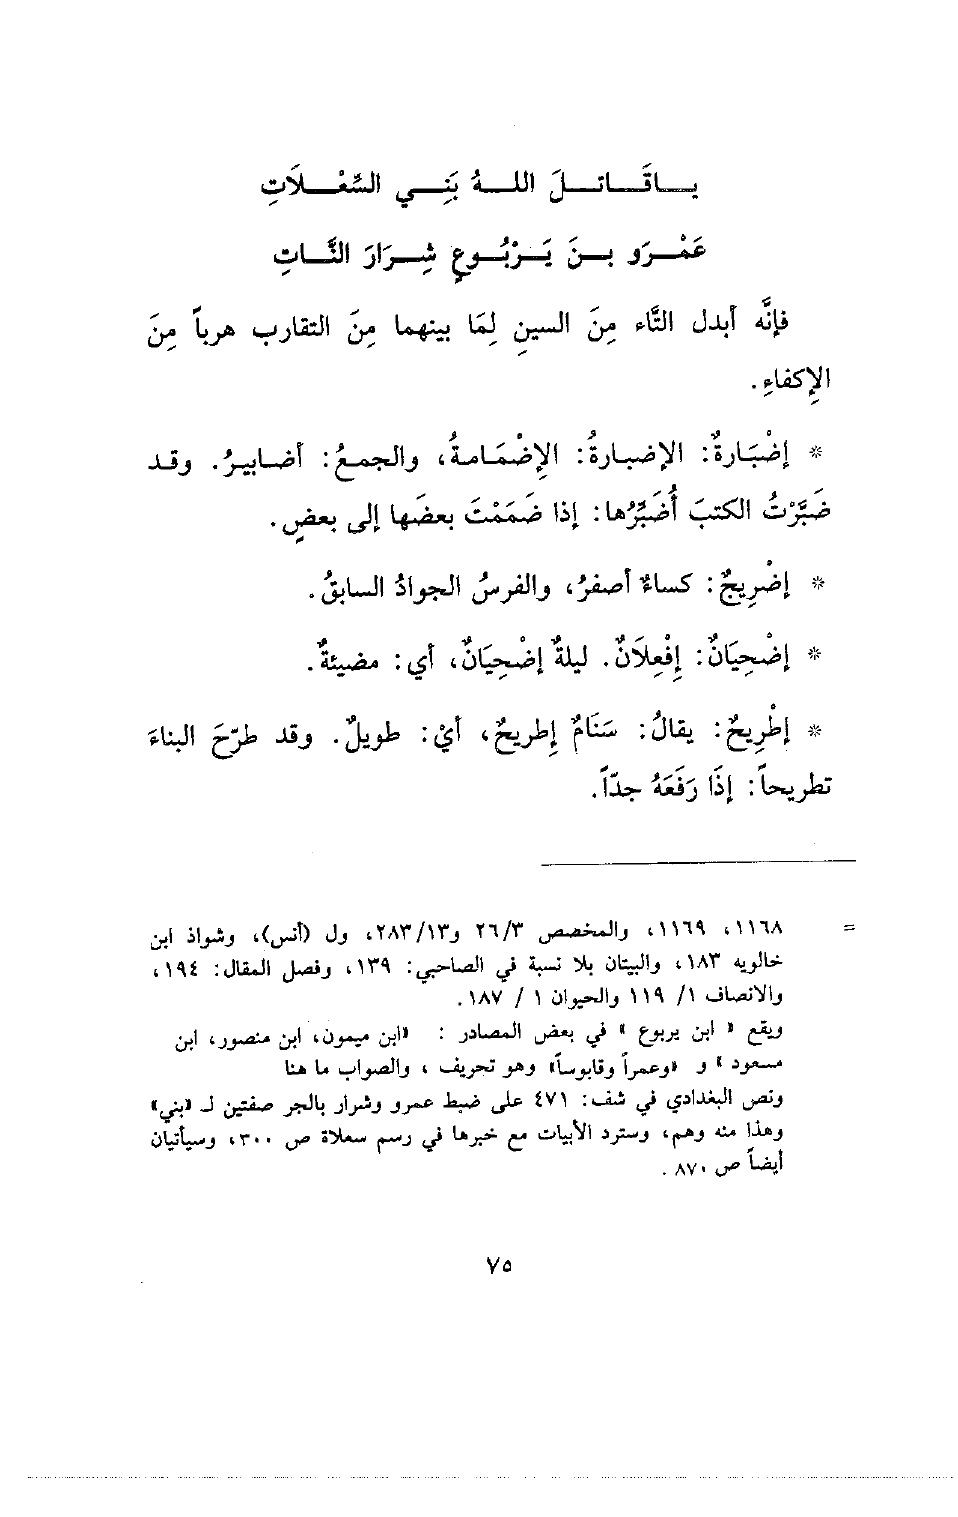 يـاقَـاتـلَ اللـهُ بَنِـي السِّعْـلَاتِ
عَمْـرَو بـنَ يَـرْبُـوعٍ شِـرَارَ النَّـاتِ
فإنَّه أبدل التَّاء مِنَ السينِ لِمَا بينهما مِنَ التقارب هرباً مِنَ
الإكفاءِ.
* إضْبَارةٌ: الإضبارةُ: الإضْمَامةُ، والجمعُ: أضابيرُ. وقد
ضَبَّرْتُ الكتبَ أُضَبِّرُها: إذا ضَمَمْتَ بعضَها إلى بعضٍ.
* إضْرِيجٌ: كساءٌ أصفرُ، والفرسُ الجوادُ السابقُ.
* إضْحِيَانٌ: إِفْعِلَانٌ. ليلةٌ إضْحِيَانٌ، أي: مضيئةٌ.
* إطْرِيحٌ: يقالُ: سَنَامٌ إِطريحٌ، أيْ: طويلٌ. وقد طرّحَ البناءَ
تطريحاً: إذَا رَفَعَهُ جدّاً.
= ١١٦٨، ١١٦٩، والمخصص ٢٦/٣ و٢٨٣/١٣، ول (أنس)، وشواذ ابن
خالويه ١٨٣، والبيتان بلا نسبة في الصاحبي: ١٣٩، وفصل المقال: ١٩٤،
والانصاف ١/ ١١٩ والحيوان ١ / ١٨٧.
ويقع « ابن يربوع » في بعض المصادر : «ابن ميمون، ابن منصور، ابن
مسعود » و «وعمراً وقابوساً» وهو تحريف ، والصواب ما هنا
ونص البغدادي في شف: ٤٧١ على ضبط عمرو وشرار بالجر صفتين لـ «بني»
وهذا منه وهم، وسترد الأبيات مع خبرها في رسم سعلاة ص ٣٠٠، وسيأتيان
أيضاً ص ٨٧٠ .
٧٥